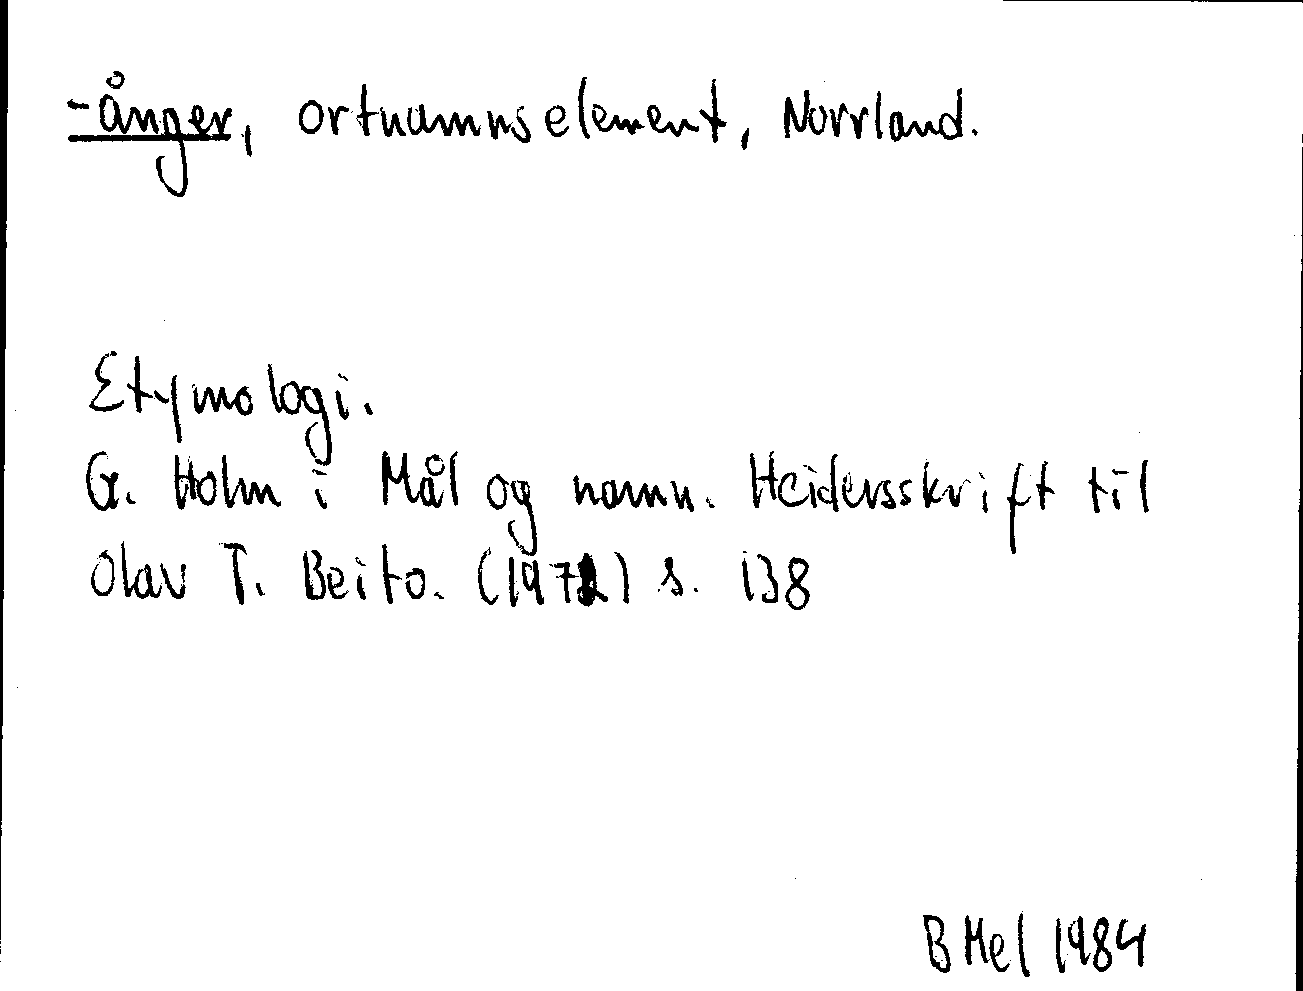 -ånger, ortnamnselement, Norrland.
Etymologi.
G. Holm i Mål og namn. Heidersskrift til
Olav T. Beito. (1971) s. 138
B Hel 1984